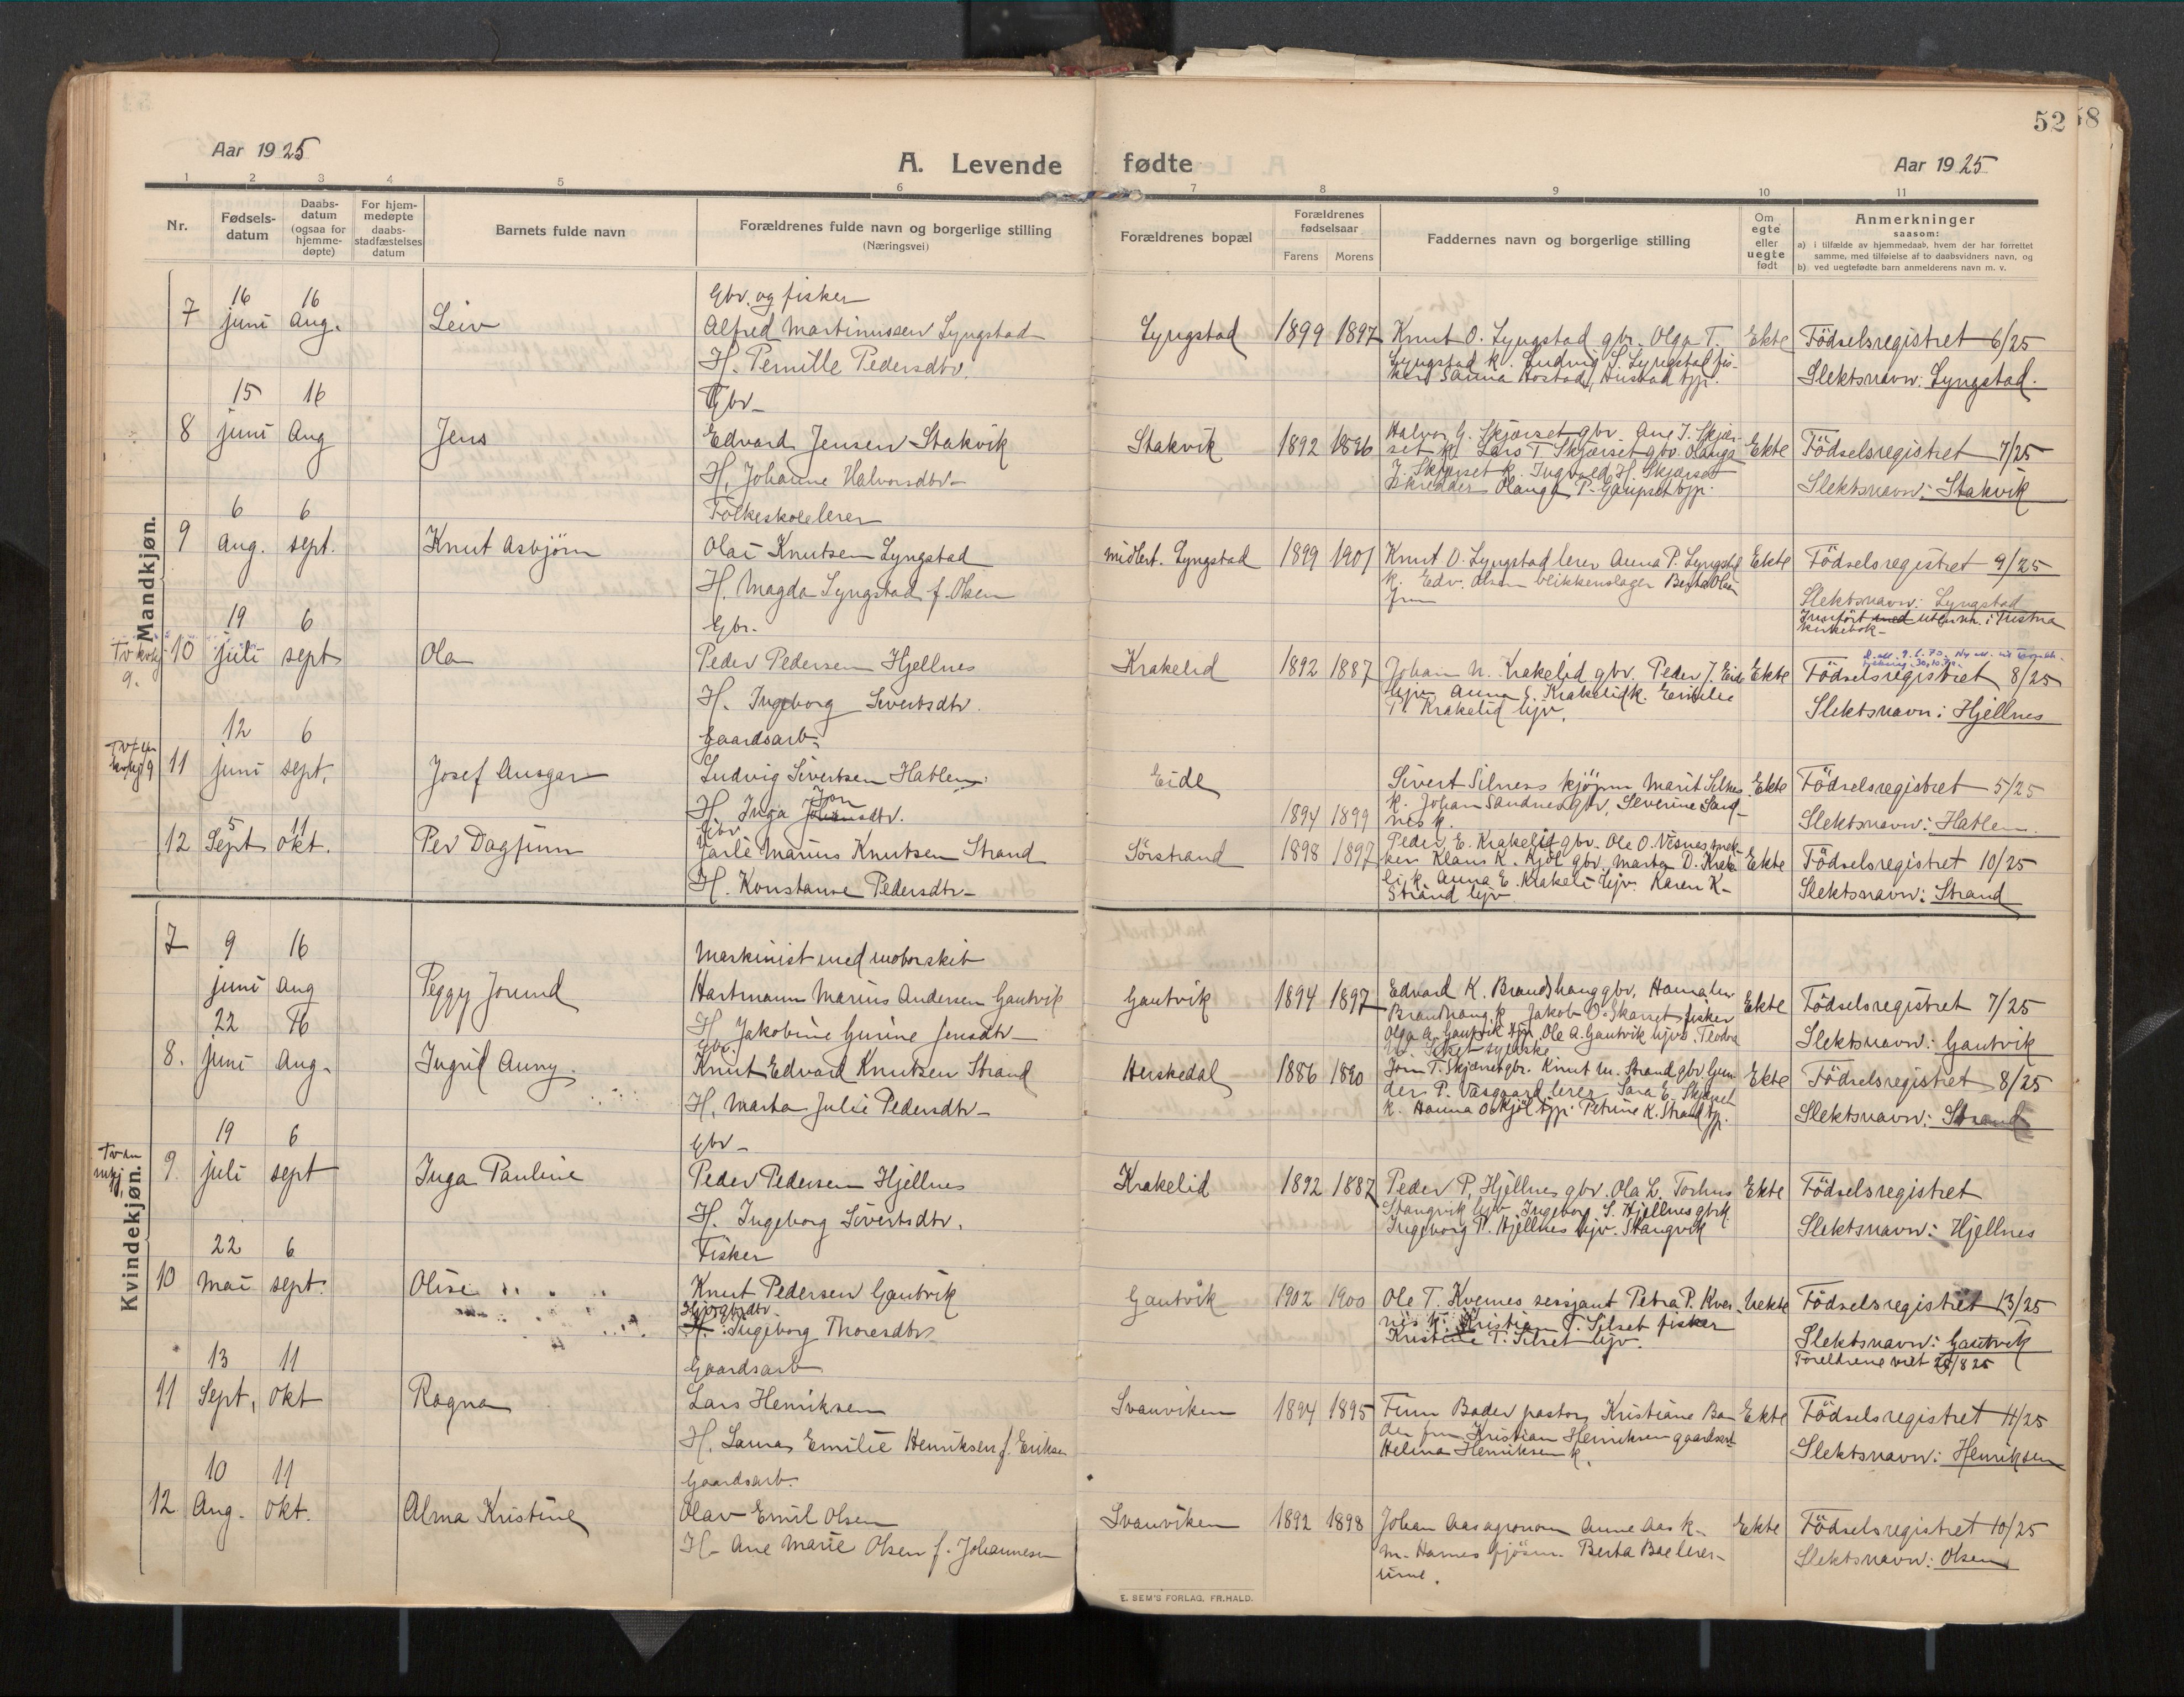 52
58
Aar 1925
A. Levende fødte
Aar 1925
1 2 3 4 5 6 7 8 9 10 11
Nr.
Fødsels-
datum
Daabs-
datum
(ogsaa for
hjemme-
døpte)
For hjem-
medøpte
daabs-
stadfæstelses
datum
Barnets fulde navn
Forældrenes fulde navn og borgerlige stilling
(Næringsvei)
Forældrenes bopæl
Forældrenes
fødselsaar
Farens Morens
Faddernes navn og borgerlige stilling
Om
egte
eller
uegte
født
Anmerkninger
saasom:
a) i tilfælde av hjemmedaab, hvem der har forrettet
samme, med tilføielse af to daabsvidners navn, og
b) ved uegtefødte barn anmelderens navn m. v.
Mandkjøn.
16 16 Gbr. og fisker
7 juni Aug. Leiv Alfred Martinussen Lyngstad Lyngstad 1899 1897 Knut O. Lyngstad gbr. Olga T. Ekte Födselsregistret 6/25
H. Pernille Pedersdtr. Lyngstad k. Ludvig S. Lyngstad fis-
ker Slektsnavn: Lyngstad.
15 16 Gbr
8 juni Aug Jens Edvard Jensen Stakvik Stakvik 1892 1896 Halvor G. Skjærset gbr. Ane J. Skjær-
set k. Lars T. Skjærset gbr. Ekte Födselsregistret 7/25
H. Johanne Halvorsdtr J. Skjærset k. Ingvald H. Skjærset
skredder Olauga P. Gaupset tjp. Slektsnavn: Stakvik
6 6 Folkeskolelerer
9 Aug. sept. Knut Asbjörn Olai Knutsen Lyngstad midlert. Lyngstad 1899 1901 Knut O. Lyngstad lerer Anna P. Lyngstad Ekte Födselsregistret 9/25
H. Magda Lyngstad f. Olsen k. Edv. Olsen blikkenslager Berta Olsen
frue Slektsnavn: Lyngstad
Innfört med utenbn. i Tustna
kirkebok
19 6 Gbr.
10 juli sept Ola Peder Pedersen Hjellnes Krakelid 1892 1887 Johan N. Krakelid gbr. Peder J. Eide Ekte Födselsregistret 8/25
H. Ingeborg Sivertsdtr. ugv. Anna E. Krakelid k. Emilie
P. Krakelid ugv. Slektsnavn: Hjellnes
12 6 Gaardsarb.
11 juni sept. Josef Ansgar Ludvig Sivertsen Hatlem Eide 1894 1899 Sivert Silnes kjöpm Marit Silnes Ekte Födselsregistret 5/25
H. Inga Jonsdtr. k. Johan Sandnes gbr, Severine Sand-
nes k. Slektsnavn: Hatlem
5 11 Gbr
12 Sept okt. Per Dagfinn Jarle Marius Knutsen Strand Sörstrand 1898 1897 Peder E. Krakelid gbr. Ole O. Visnes snek-
ker Klaus K. Kjöl gbr. Marta D. Krake-
li k. Anna E. Krakeli ugv. Karen K.
Strand ugv Ekte Födselsregistret 10/25
H. Konstanse Pedersdtr Slektsnavn: Strand
Kvindekjøn.
9 16 Maskinist med motorskib
7 juni Aug Peggy Jorund Hartmann Marius Andersen Gautvik Gautvik 1894 1897 Edvard K. Brandshaug gbr, Ekte Födselsregistret 7/25
H. Jakobine Gurine Jensdtr Brandhaug k. Jakob O. Skarset fisker
Olga A. Gautvik tjp, Ole A. Gautvik ugv. Teodora
Slektsnavn: Gautvik
22 16 Gbr.
8. juni Aug. Ingrid Anny Knut Edvard Knutsen Strand Herskedal 1886 1890 Jörn T. Skjærset gbr. Knut M. Strand gbr Gun-
der P. Vaagaard lerer Sara E. Skjærset
k. Hanna O. Kjöl tjp. Petrine K. Strand tjp. Ekte Födselsregistret 8/25
H. Marta Julie Pedersdtr Slektsnavn: Strand
19 6 Gbr
9. juli sept Inga Pauline Peder Pedersen Hjellnes Krakelid 1892 1887 Peder P. Hjellnes gbr. Ola L. Torhus Ekte Födselsregistret
H. Ingeborg Sivertsdtr. Stangvik ugv. Ingeborg S. Hjellnes gbrk
Ingeborg P. Hjellnes ugv. Stangvik Slektsnavn: Hjellnes
22 6 Fisker
10 Mai sept. Olise Knut Pedersen Gautvik Gautvik 1902 1900 Ole T. Kvernes sersjant Petra P. Kver-
nes k. Kristian T. Silset fisker
Kristine T. Silset ugv. Uekte Födselsregistret 13/25
H. Ingeborg Thoresdtr Slektsnavn: Gautvik
Foreldrene viet 28/8 25
13 11 Gaardsarb
11 Sept, okt Ragna Lars Henriksen Svanviken 1894 1895 Finn Bader pastor Kristiane Ba-
der frue Kristian Henriksen gaardsarb
Helena Henriksen k. Ekte Födselsregistret 11/25
H. Laura Emilie Henriksen f. Eriksen Slektsnavn: Henriksen
10 11 Gaardsarb.
12 Aug. okt. Alma Kristine Olav Emil Olsen Svanviken 1892 1898 Johan Aas agronom Anne Aas k. Ekte Födselsregistret 10/25
H. Ane Marie Olsen f. Johannesen M. Harnes fjösm. Berta Boe lerer-
inne. Slektsnavn: Olsen
E. SEM'S FORLAG, FR.HALD.